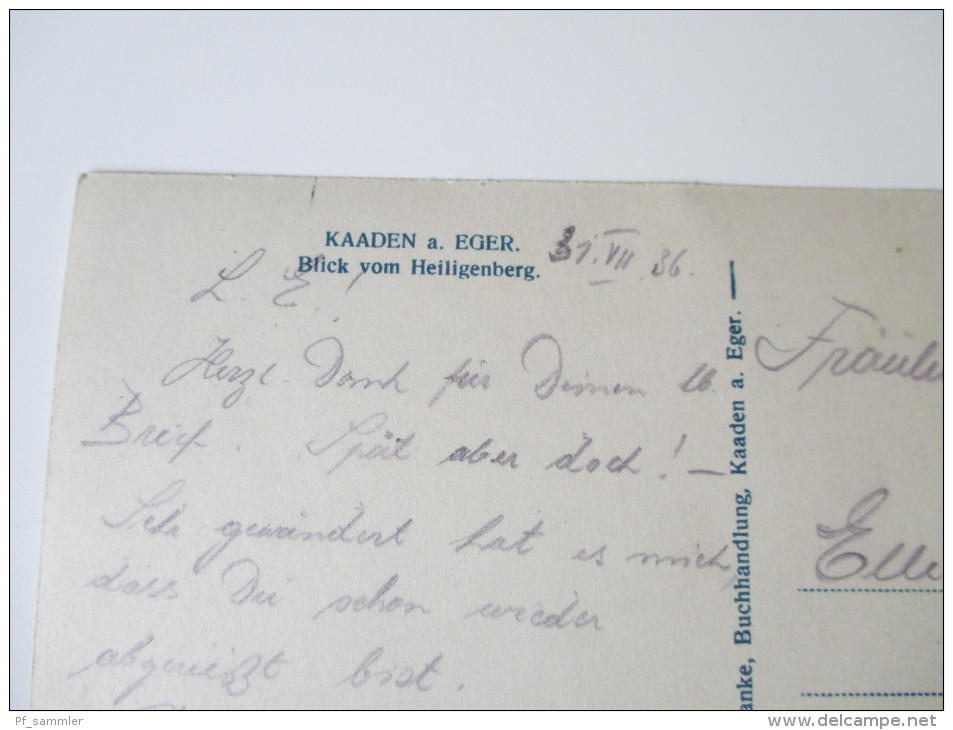 KAADEN a. EGER.
Blick vom Heiligenberg.
31. VII 36.
L. E.!
Herzl. Dank für Deinen lb.
Brief. Spät aber doch! —
Sehr gewundert hat es mich,
dass Du schon wieder
abgereist bist.
anke, Buchhandlung, Kaaden a. Eger. —
Fräulei
Elle
Pf_sammler
delcampe.net